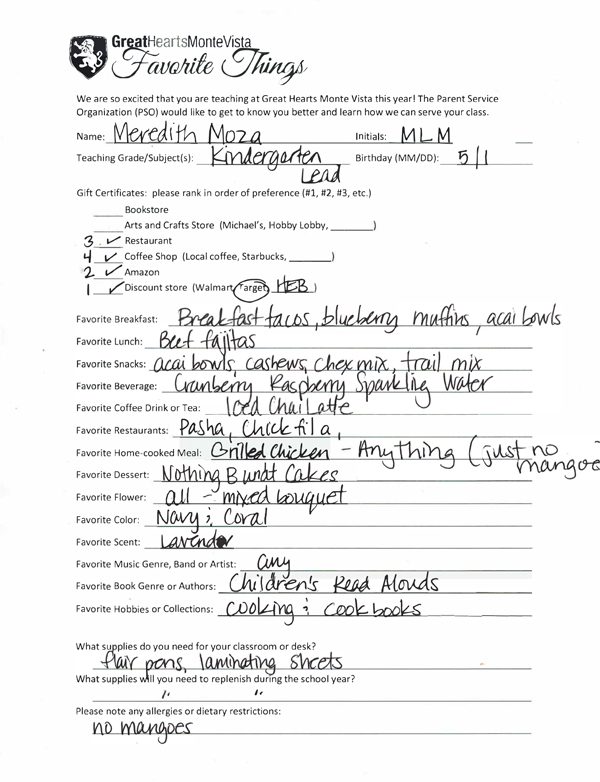 GreatHeartsMonteVista
Favorite Things
We are so excited that you are teaching at Great Hearts Monte Vista this year! The Parent Service
Organization (PSO) would like to get to know you better and learn how we can serve your class.
Name: Meredith Moza Initials: MLM
Teaching Grade/Subject(s): Kindergarten Birthday (MM/DD): 5/1
Lead
Gift Certificates: please rank in order of preference (#1, #2, #3, etc.)
Bookstore
Arts and Crafts Store (Michael's, Hobby Lobby, ________)
3 ✓ Restaurant
4 ✓ Coffee Shop (Local coffee, Starbucks, ________)
2 ✓ Amazon
1 ✓ Discount store (Walmart, Target, HEB)
Favorite Breakfast: Breakfast tacos, blueberry muffins, acai bowls
Favorite Lunch: Beef fajitas
Favorite Snacks: acai bowls, cashews, chex mix, trail mix
Favorite Beverage: Cranberry Raspberry Sparkling Water
Favorite Coffee Drink or Tea: Iced Chai Latte
Favorite Restaurants: Pasha, Chick fil a,
Favorite Home-cooked Meal: Grilled Chicken - Anything (just no
mangoe
Favorite Dessert: Nothing Bundt Cakes
Favorite Flower: all - mixed bouquet
Favorite Color: Navy & Coral
Favorite Scent: Lavender
Favorite Music Genre, Band or Artist: any
Favorite Book Genre or Authors: Children's Read Alouds
Favorite Hobbies or Collections: cooking & cookbooks
What supplies do you need for your classroom or desk?
flair pens, laminating sheets
What supplies will you need to replenish during the school year?
" "
Please note any allergies or dietary restrictions:
no mangoes